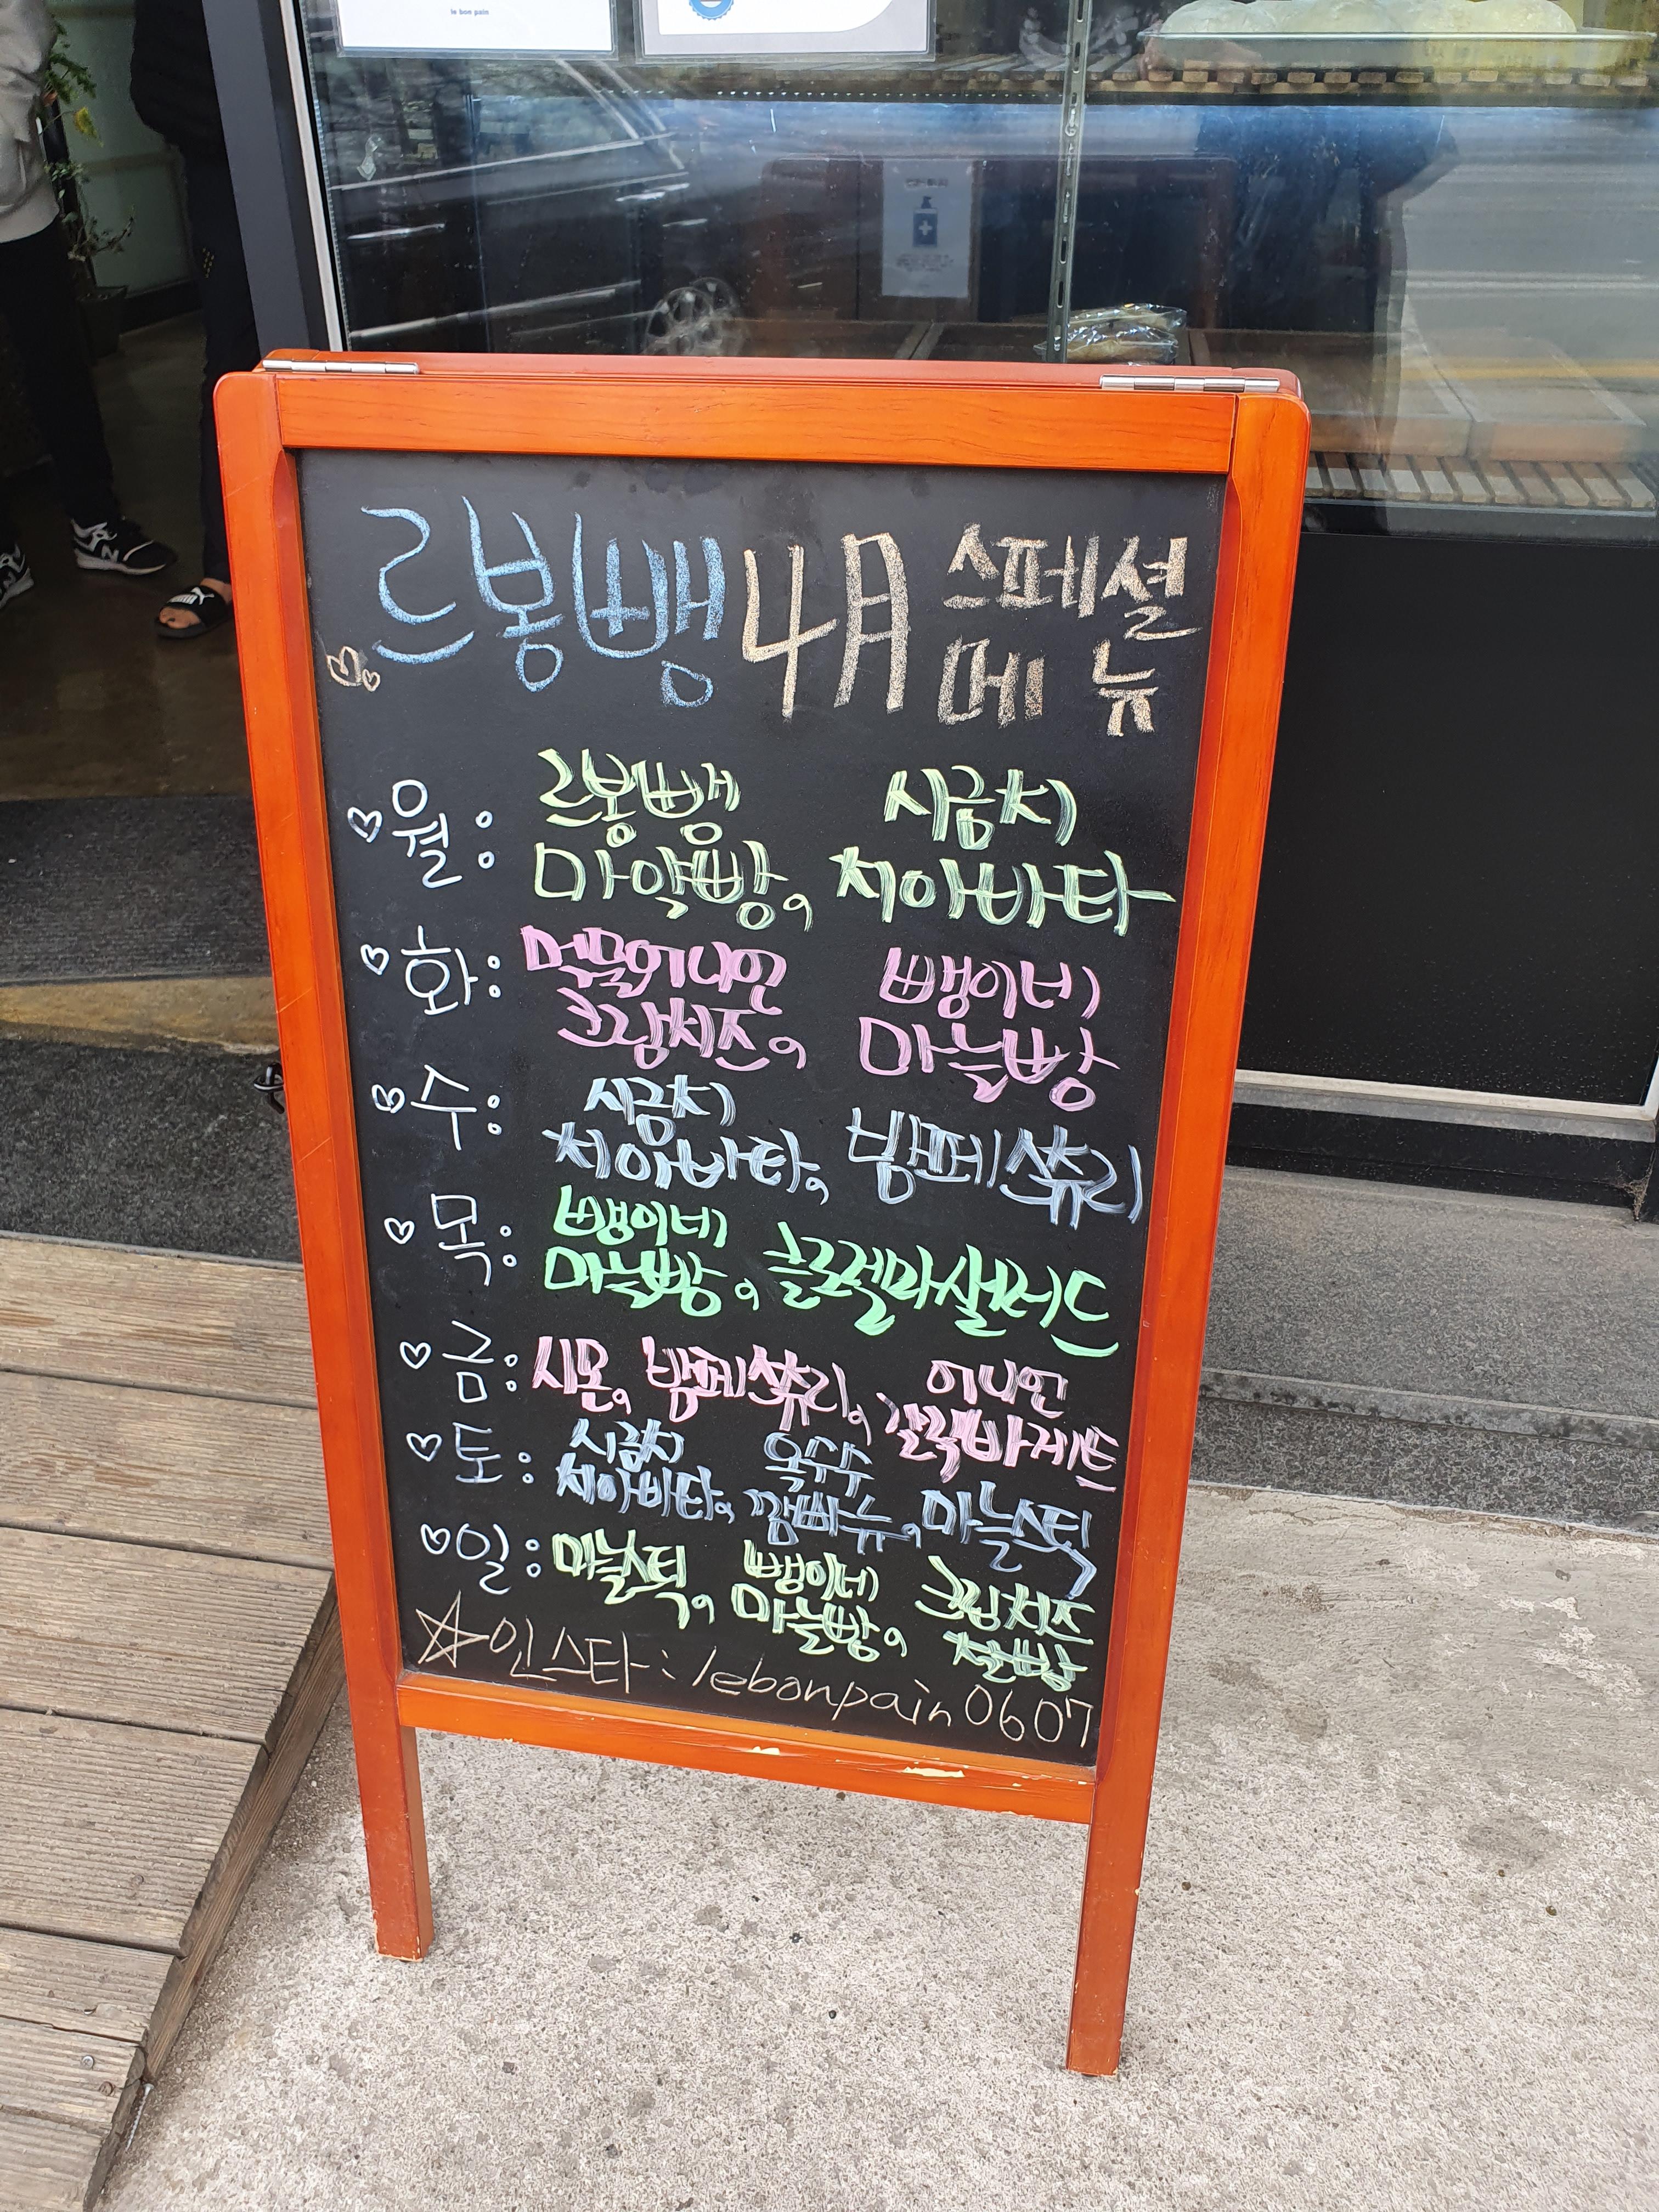 le bon pain
르봉뺑 4月 스페셜
메뉴
월: 르봉뺑 시금치
마약빵, 치아바타
화: 먹물어니언 뺑이네
크림치즈, 마늘빵
수: 시금치
치아바타, 밤페스츄리
목: 뺑이네
마늘빵, 클로렐라샐러드
금: 시몬, 밤페스츄리, 어니언
갈릭바게트
토: 시금치 옥수수
치아바타, 깜빠뉴, 마늘스틱
일: 마늘스틱, 뺑이네 크림치즈
마늘빵, 찰빵
☆인스타: lebonpain0607